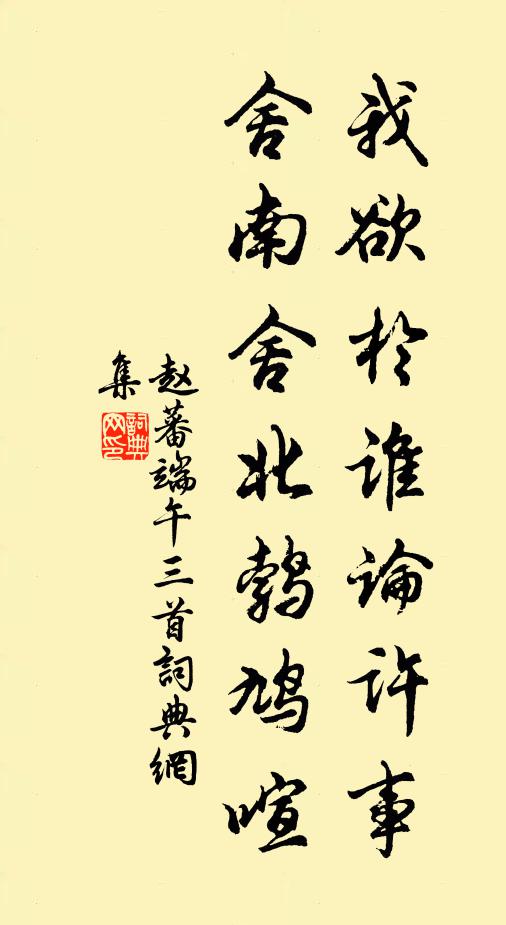 我欲於谁論许事
舍南舍北鹁鸠喧
赵蕃端午三首詞典網
集
詞典
网印